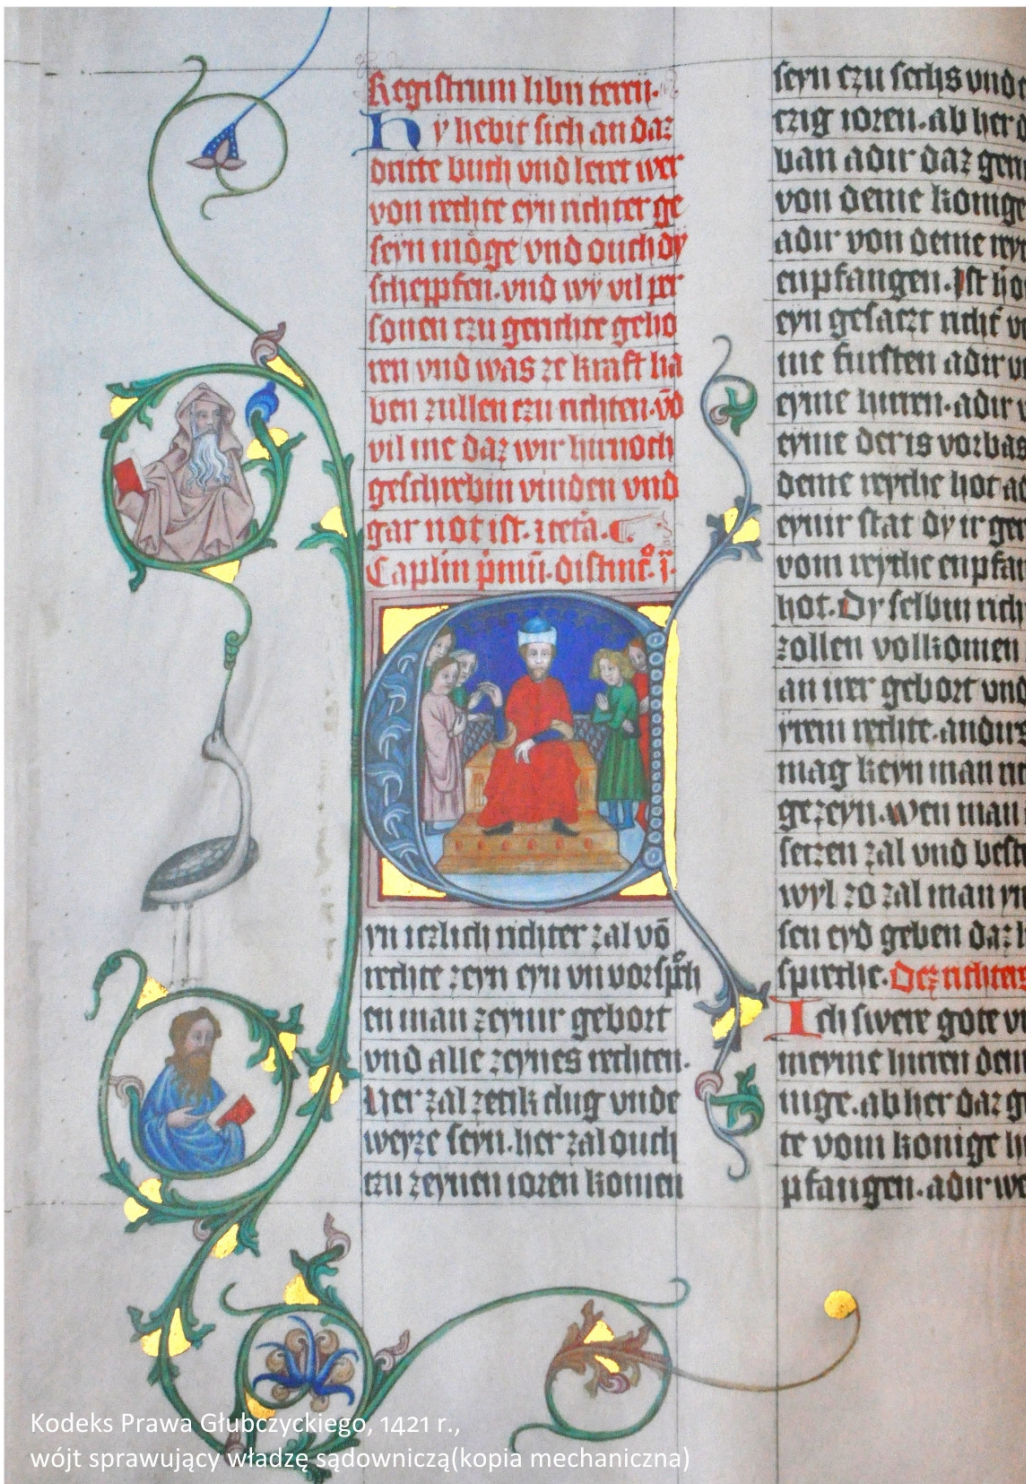 Registrum libri tercii.
Hy hebit sich an daz
dritte buch vnd leret wer
von rechte eyn richter ge
seyn möge vnd ouch dy
scheppfen. vnd wy vil per
sonen czu gerichte geho
ren vnd was ze kraft ha
ben zullen czu richten. vn̄d
vil me daz wir hirnoch
geschrebin vinden vnd
gar not ist.
distinc̄.
yn iczlich richter zal vō
rechte zeyn eyn vnvorsp̊ch
en man zeynir gebort
vnd alle zeynes rechten.
Her zal zetik clug vnde
weyze seyn. her zal ouch
czu zeynen ioren komen
seyn czu sechs vnd
czig ioren. ab her d
ban adir daz geri
von deme konige
adir von deme rey
enpfangen. Ist
eyn gesaczt
me fursten adir
eyme hirren. adir
eyme der is vorbas
deme reyche hot
eynir stat dy ir ger
vom reyche enpfan
hot. Dy selbin rich
zollen volkomen
an irer gebort vnd
yrem rechte. andirs
mag keyn man ric
gezeyn. wen man
seczen zal vnd
wyl zo zal man yn
sen eyd geben daz
spreche. Dez richters
Ich swere gote
meyme hirren dem
nige. ab her daz g
te vom konige
pfangen. adir
Kodeks Prawa Głubczyckiego, 1421 r.,
wójt sprawujący władzę sądowniczą(kopia mechaniczna)